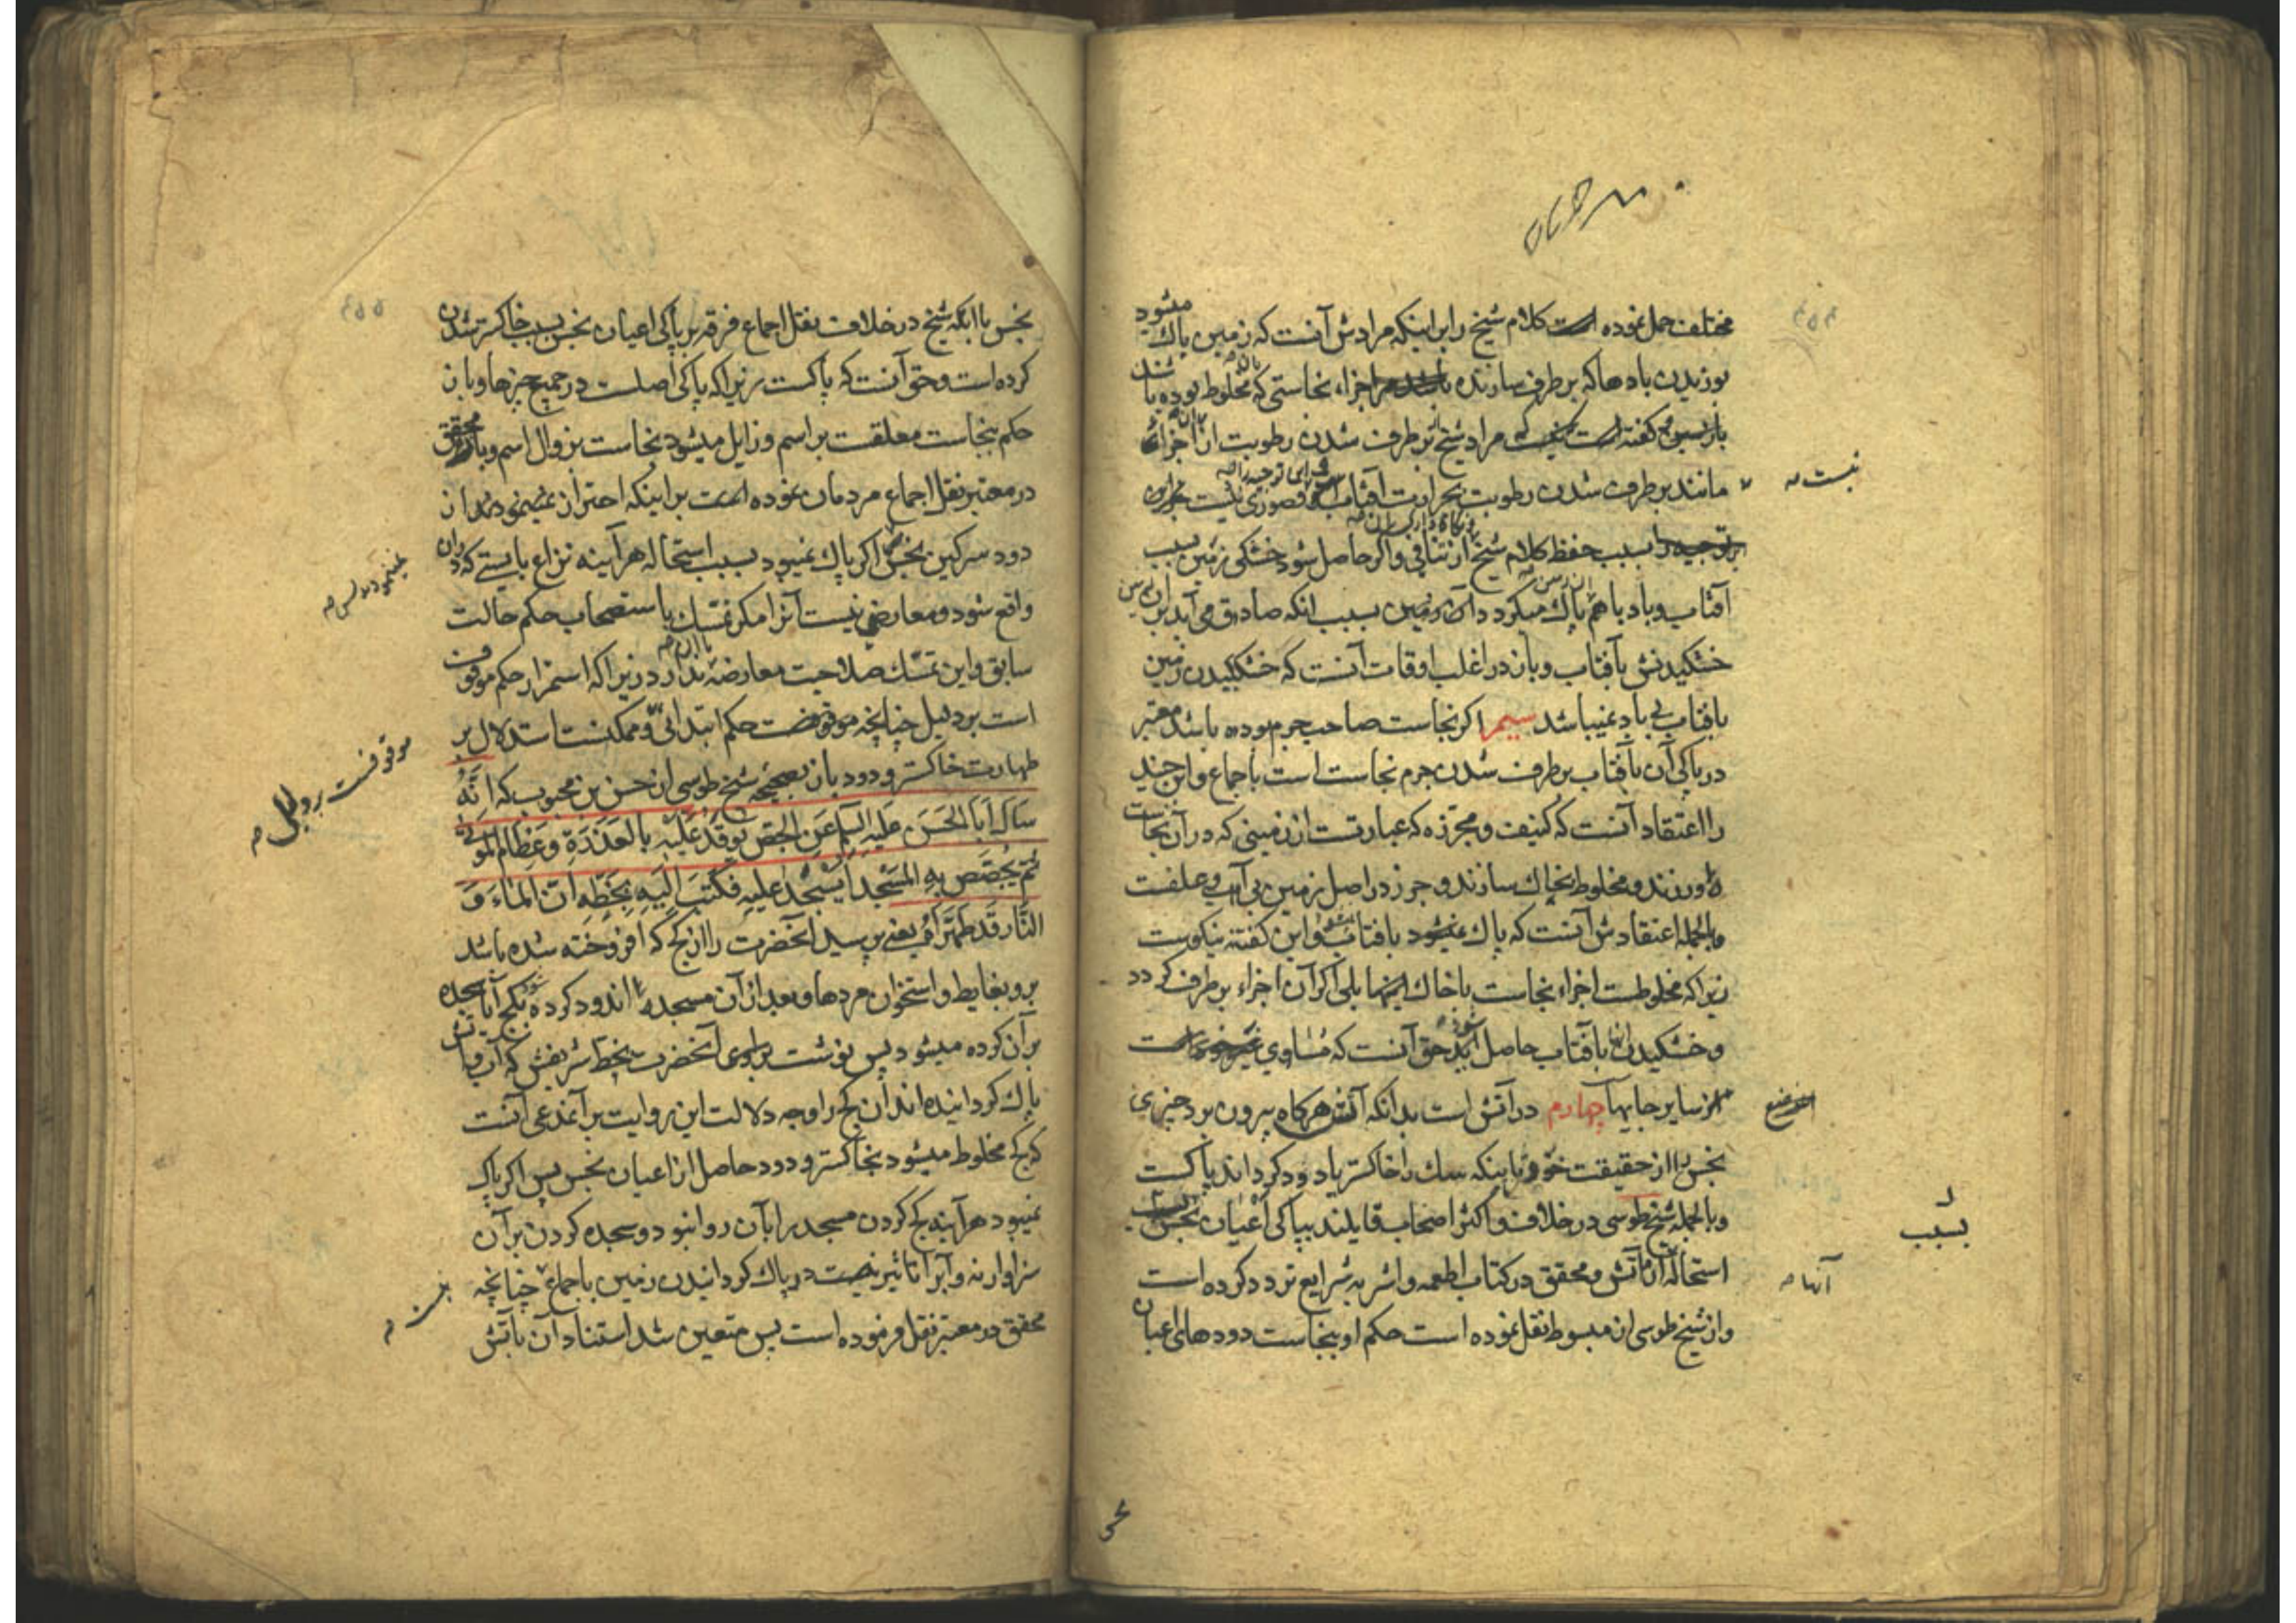 مختلف حمل نموده است کلام شیخ را بر اینکه مرادش آنست که زمین پاک میشود
بوزیدن بادها که برطرف سازنده باشند مر اجزاء نجاستی که مخلوط بوده باشد
باز گفته است که مراد شیخ برطرف شدن رطوبت از اجزاء
مانند برطرف شدن رطوبت بحرارت آفتاب و قصوری نیست
نیست
توجیه را بسبب حفظ کلام شیخ از تنافی و اگر حاصل شود خشکی زمین بسبب
آفتاب و باد با هم پاک میکردد آن زمین بسبب انکه صادق می آید بر آن زمین
خشکیدنش بآفتاب و باز در اغلب اوقات آنست که خشکیدن زمین
بافتاب بی باد نمیباشد سیم اکر نجاست صاحب جرم بوده باشد معتبر
در پاکی آن بآفتاب برطرف شدن جرم نجاست است باجماع و ابن جنید
را اعتقاد آنست که کنیف و مجزره که عبارتست از زمینی که در آن نجاست
آورند و مخلوط بخاک سازند و جرز در اصل زمین بی آب و علفست
و بالجمله اعتقادش آنست که پاک نمیشود بافتاب و این گفته نیکوست
زیرا که مخلوطست اجزاء نجاست باخاک اینها بلی اکر آن اجزاء برطرف کردد
و خشکیدن بآفتاب حاصل آید حق آنست که مساوی است
از سایر جایها چهارم در آتش است بدانکه آتش هرکاه بیرون برد چیزی
نجس را از حقیقت خود باینکه سک را خاکستر یا دود کرداند پاکست
و بالجمله شیخ طوسی در خلاف و اکثر اصحاب قایلند بپاکی اعیان نجس بسبب
بسبب
استحاله از آتش و محقق در کتاب اطعمه و اشربه شرایع تردد کرده است
آنها
و از شیخ طوسی از مبسوط نقل نموده است حکم او بنجاست دودهای اعیان
نجس با انکه شیخ در خلاف نقل اجماع فرقه بر پاکی اعیان نجس بسبب خاکستر شدن
کرده است و حق آنست که پاکست زیرا که پاکی اصلست در جمیع چیزها و باز
حکم بنجاست معلقست بر اسم و زایل میشود نجاست بزوال اسم و باز محقق
در معتبر نقل اجماع مردمان نموده است بر اینکه احتراز نمینمودند از
دود سرکین نجس اکر پاک نمیبود بسبب استحاله هرآینه نزاع بایستی که در آن
واقع شود و معارضی نیست آنرا مکر تمسک باستصحاب حکم حالت
سابق و این تمسک صلاحیت معارضه ندارد زیرا که استمرار حکم موقوف
است بر دلیل چنانچه موقوفست حکم ابتدائی و ممکنست استدلال بر
موقوفست بر دلیل
طهارت خاکستر و دود باز بصحیحه شیخ طوسی از حسن بن محبوب که انه
سأل أبا الحسن علیه السلم عن الجص یوقد علیه بالعذرة وعظام الموتی
ثم یجصص به المسجد أیسجد علیه فکتب الیه بخطه ان الماء و
النار قد طهراه یعنی پرسید آنحضرت را از کچ که افروخته شده باشد
برو بغایط و استخوان مردها و بعد از آن مسجد اندود کرده شود بکچ آیا سجده
بر آن کرده میشود پس نوشت براوی آنحضرت بخط شریفش که آب و آتش
پاک کردانیده اند آن کچ را و وجه دلالت این روایت بر آن مدعی آنست
که کچ مخلوط میشود بخاکستر و دود حاصل از اعیان نجس پس اکر پاک
نمیبود هرآینه کچ کردن مسجد را بآن روا نبود و سجده کردن بر آن
سزاوار نه و آب را تاثیر نیست در پاک کردانیدن زمین باجماع چنانچه
محقق در معتبر نقل فرموده است پس متعین شد استناد آن بآتش